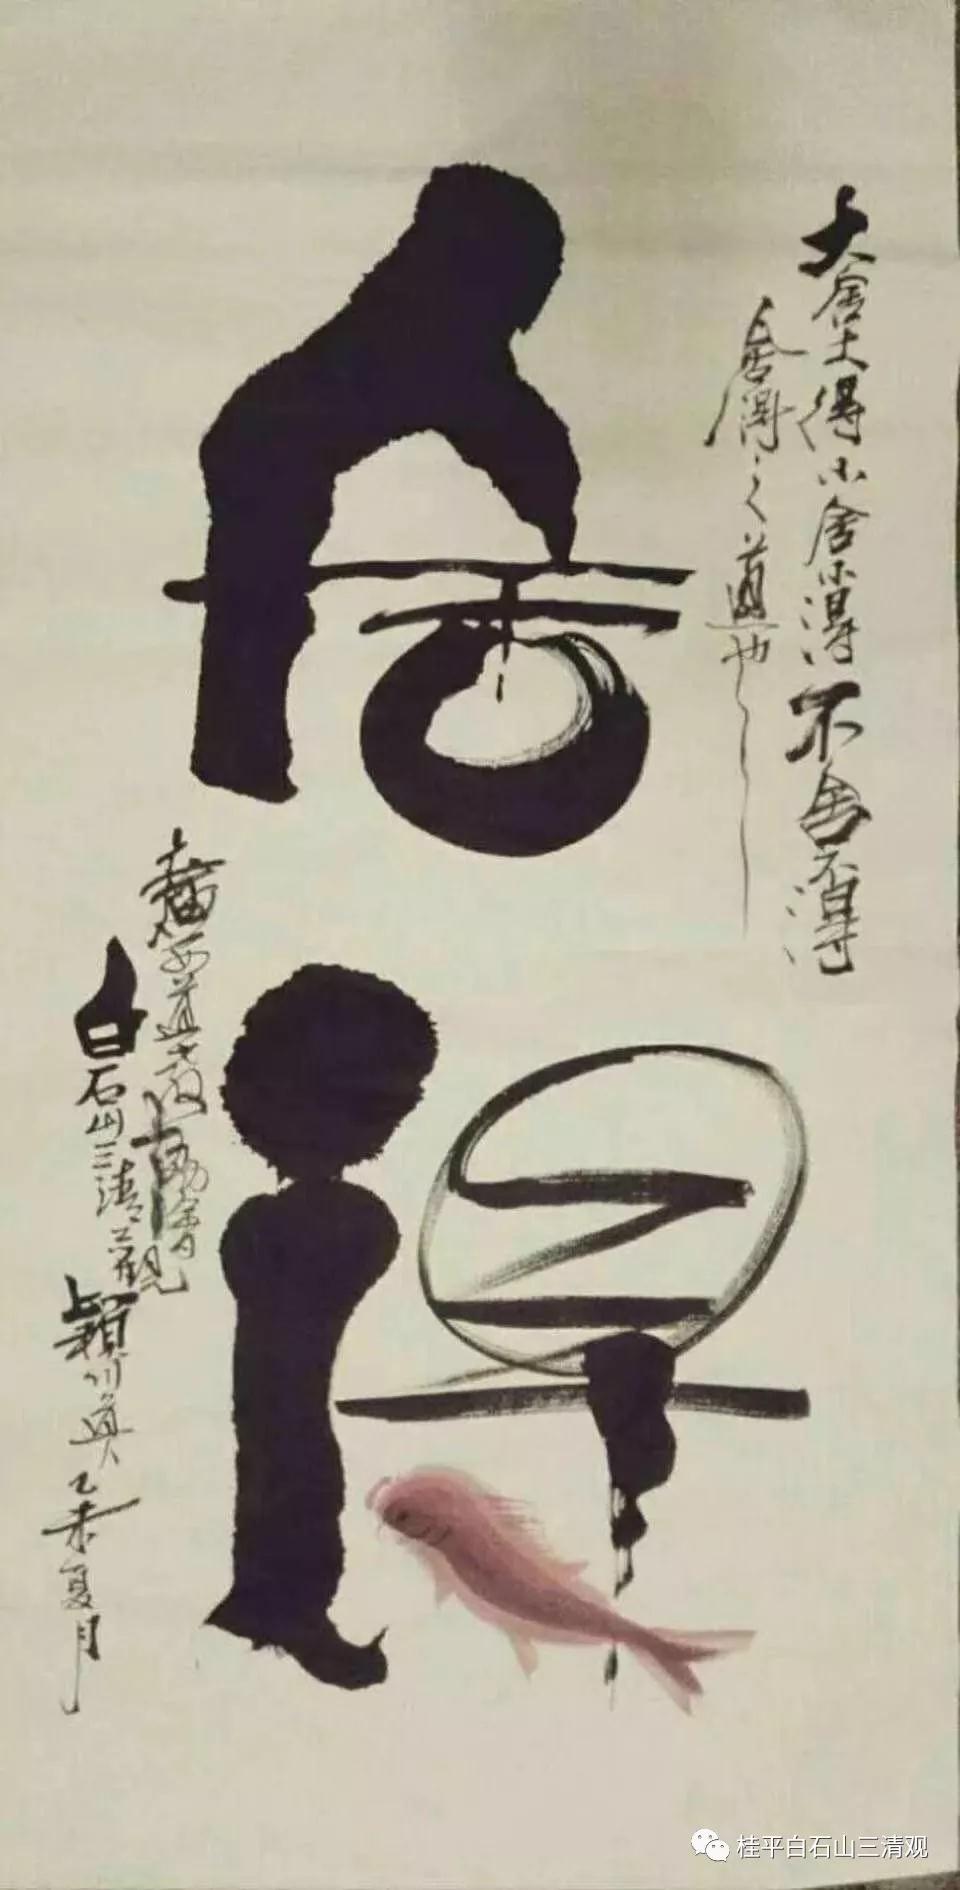 舍得
大舍大得小舍小得不舍不得
舍得之道也
西道教
白石山三清观
穎川道人乙未夏月
桂平白石山三清观